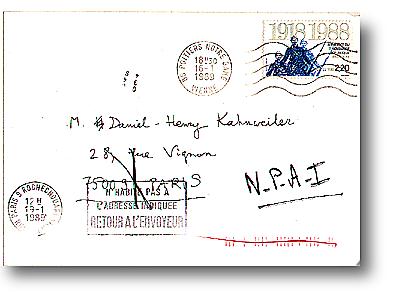 1918 1988
2,20
86 POITIERS NOTRE DAME
18H30
16-1
1989
VIENNE
M. Daniel-Henry Kahnweiler
28, rue Vignon
75009 PARIS
N.P.A.I
N'HABITE PAS A
L'ADRESSE INDIQUÉE
RETOUR A L'ENVOYEUR
PARIS 9 ROCHECHOUART
12H
19-1
1989